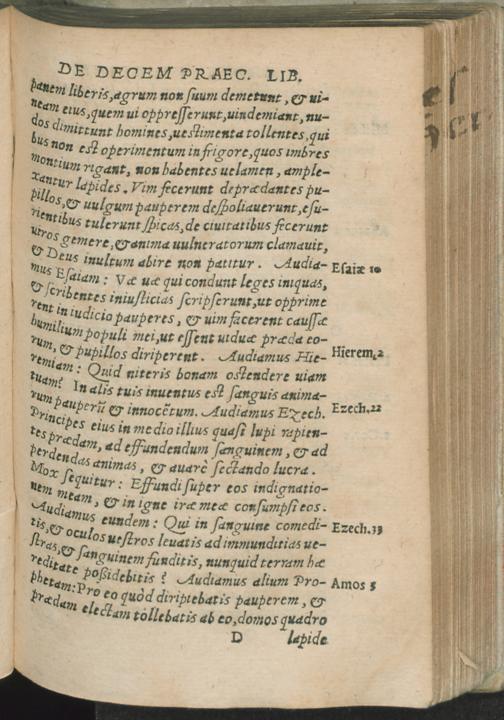 DE DECEM PRAEC. LIB.
panem liberis, agrum non suum demetunt, & ui-
neam eius, quem ui oppresserunt, uindemiant, nu-
dos dimittunt homines, uestimenta tollentes, qui
bus non est operimentum in frigore, quos imbres
montium rigant, non habentes uelamen, ample-
xantur lapides. Vim fecerunt deprædantes pu-
pillos, & uulgum pauperem despoliauerunt, esu-
rientibus tulerunt spicas, de ciuitatibus fecerunt
uiros gemere, & anima uulneratorum clamauit,
& Deus inultum abire non patitur. Audia- Esaiæ 10
mus Esaiam: Væ uæ qui condunt leges iniquas,
& scribentes iniusticias scripserunt, ut opprime
rent in iudicio pauperes, & uim facerent caussæ
humilium populi mei, ut essent uiduæ præda eo-
rum, & pupillos diriperent. Audiamus Hie- Hierem. 2
remiam: Quid niteris bonam ostendere uiam
tuam? In alis tuis inuentus est sanguis anima-
rum pauperũ & innocẽtum. Audiamus Ezech. Ezech. 22
Principes eius in medio illius quasi lupi rapien-
tes prædam, ad effundendum sanguinem, & ad
perdendas animas, & auarè sectando lucra.
Mox sequitur: Effundi super eos indignatio-
nem meam, & in igne iræ meæ consumpsi eos.
Audiamus eundem: Qui in sanguine comedi- Ezech. 33
tis, & oculos uestros leuatis ad immunditias ue-
stras, & sanguinem funditis, nunquid terram hæ
reditate possidebitis? Audiamus alium Pro- Amos 5
phetam: Pro eo quòd diripiebatis pauperem, &
prædam electam tollebatis ab eo, domos quadro
D lapide